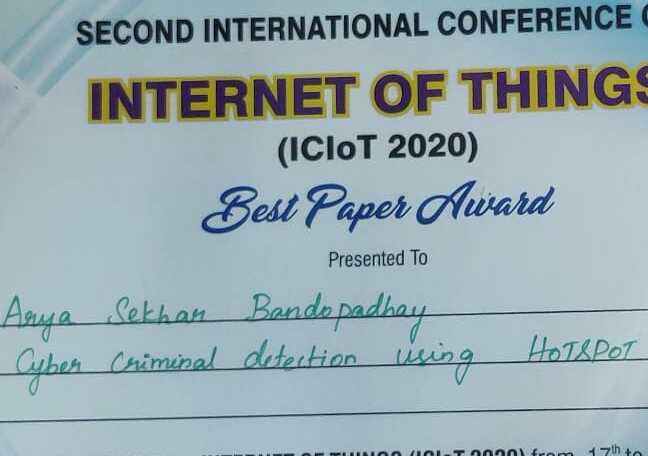 SECOND INTERNATIONAL CONFERENCE
INTERNET OF THINGS
(ICIoT 2020)
Best Paper Award
Presented To
Arya Sekhar Bandopadhay
Cyber Criminal detection using HOTSPOT
INTERNET OF THINGS (ICIoT 2020) from 17th to